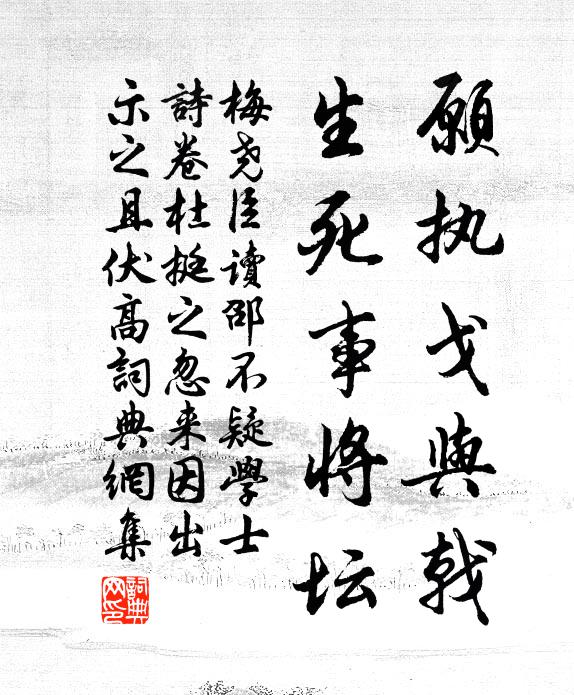 願执戈與戟
生死事将坛
梅尧臣读邵不疑學士
詩卷杜挺之忽来因出
示之且伏高詞典網集